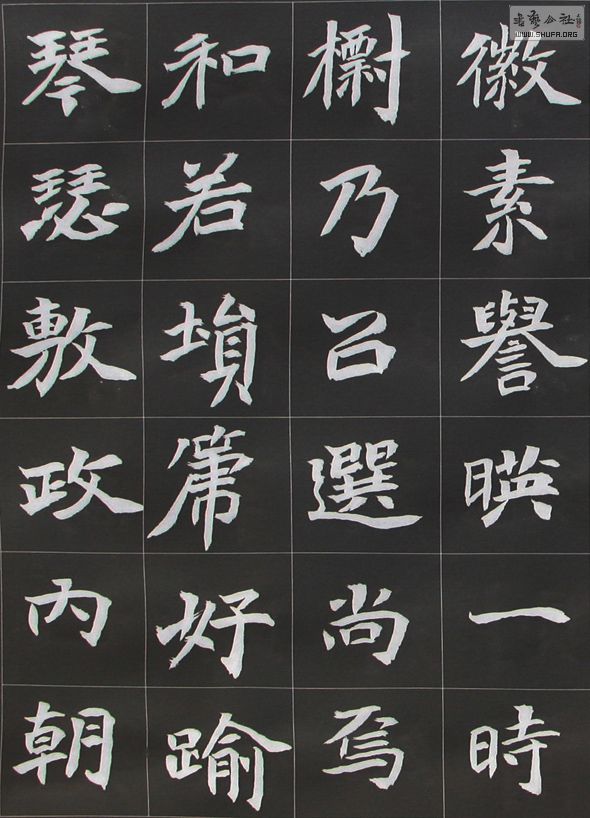 書藝公社
WWW.SHUFA.ORG
徽素譽暎一時
檦乃召選尚焉
和若塤篪好踰
琴瑟敷政內朝